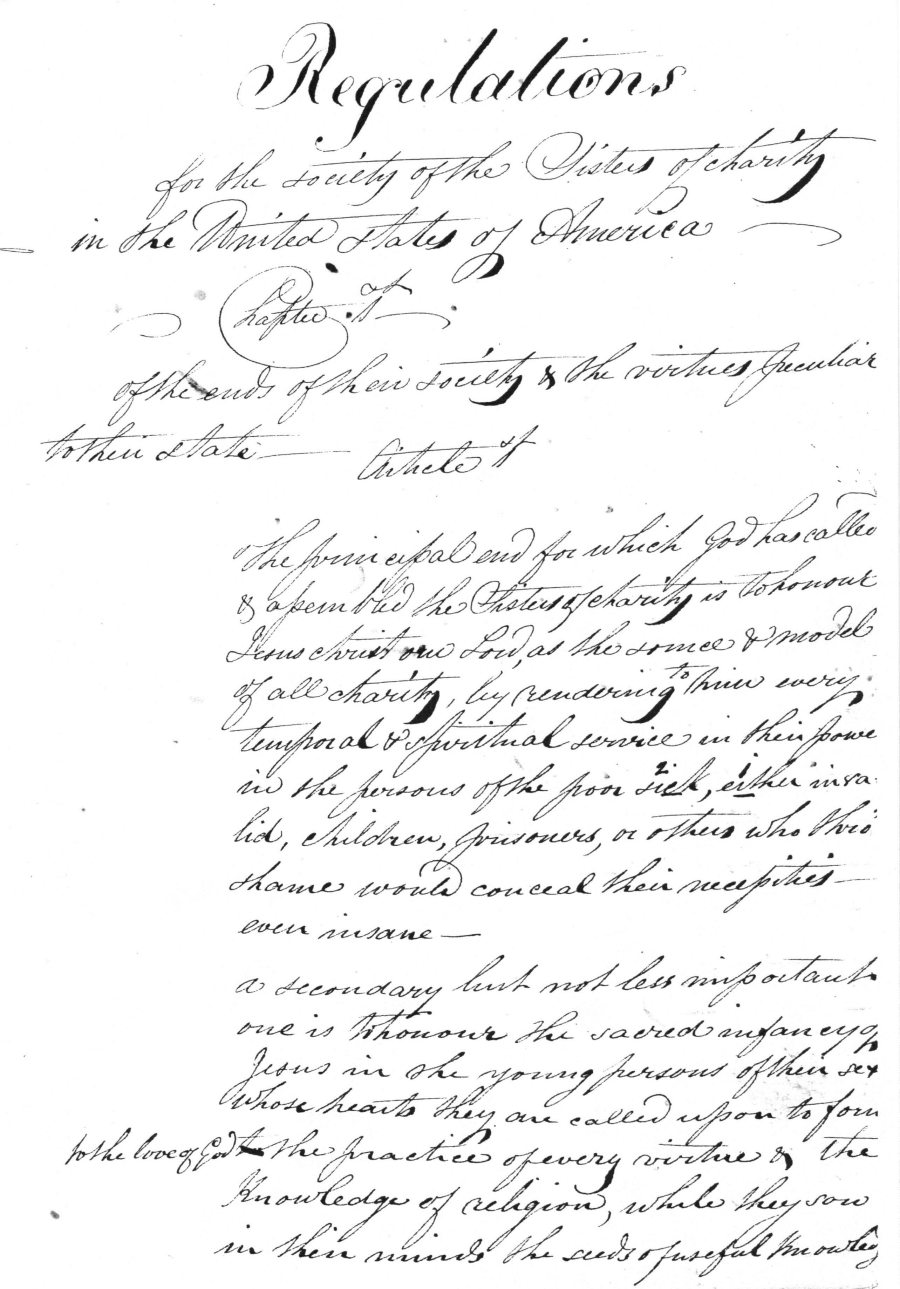 Regulations
for the society of the Sisters of charity
in the United states of America
Chapter 1st
of the ends of their society & the virtues peculiar
to their state
Article 1st
The principal end for which God has called
& assembled the Sisters of charity is to honour
Jesus christ our Lord, as the source & model
of all charity, by rendering to him every
temporal & spiritual service in their powe
in the persons of the poor 2 sick, 1 either inva
lid, children, prisoners, or others who thro'
shame would conceal their necessities
even insane —
a secondary but not less important
one is to honour the sacred infancy of
Jesus in the young persons of their sex
whose hearts they are called upon to form
to the love of God the practice of every virtue & the
Knowledge of religion, while they sow
in their minds the seeds of useful Knowledg